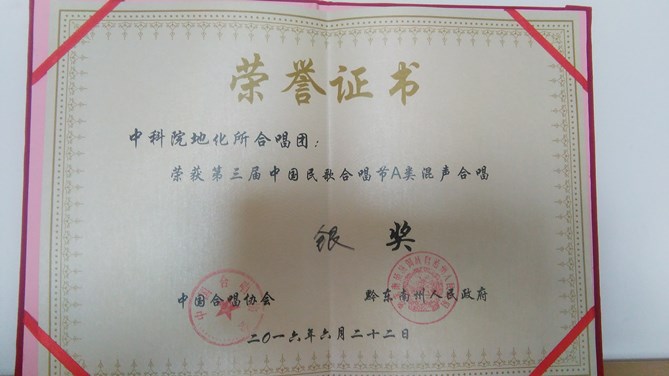 荣誉证书
中科院地化所合唱团:
荣获第三届中国民歌合唱节A类混声合唱
银 奖
中国合唱协会 黔东南州人民政府
二〇一六年六月二十二日